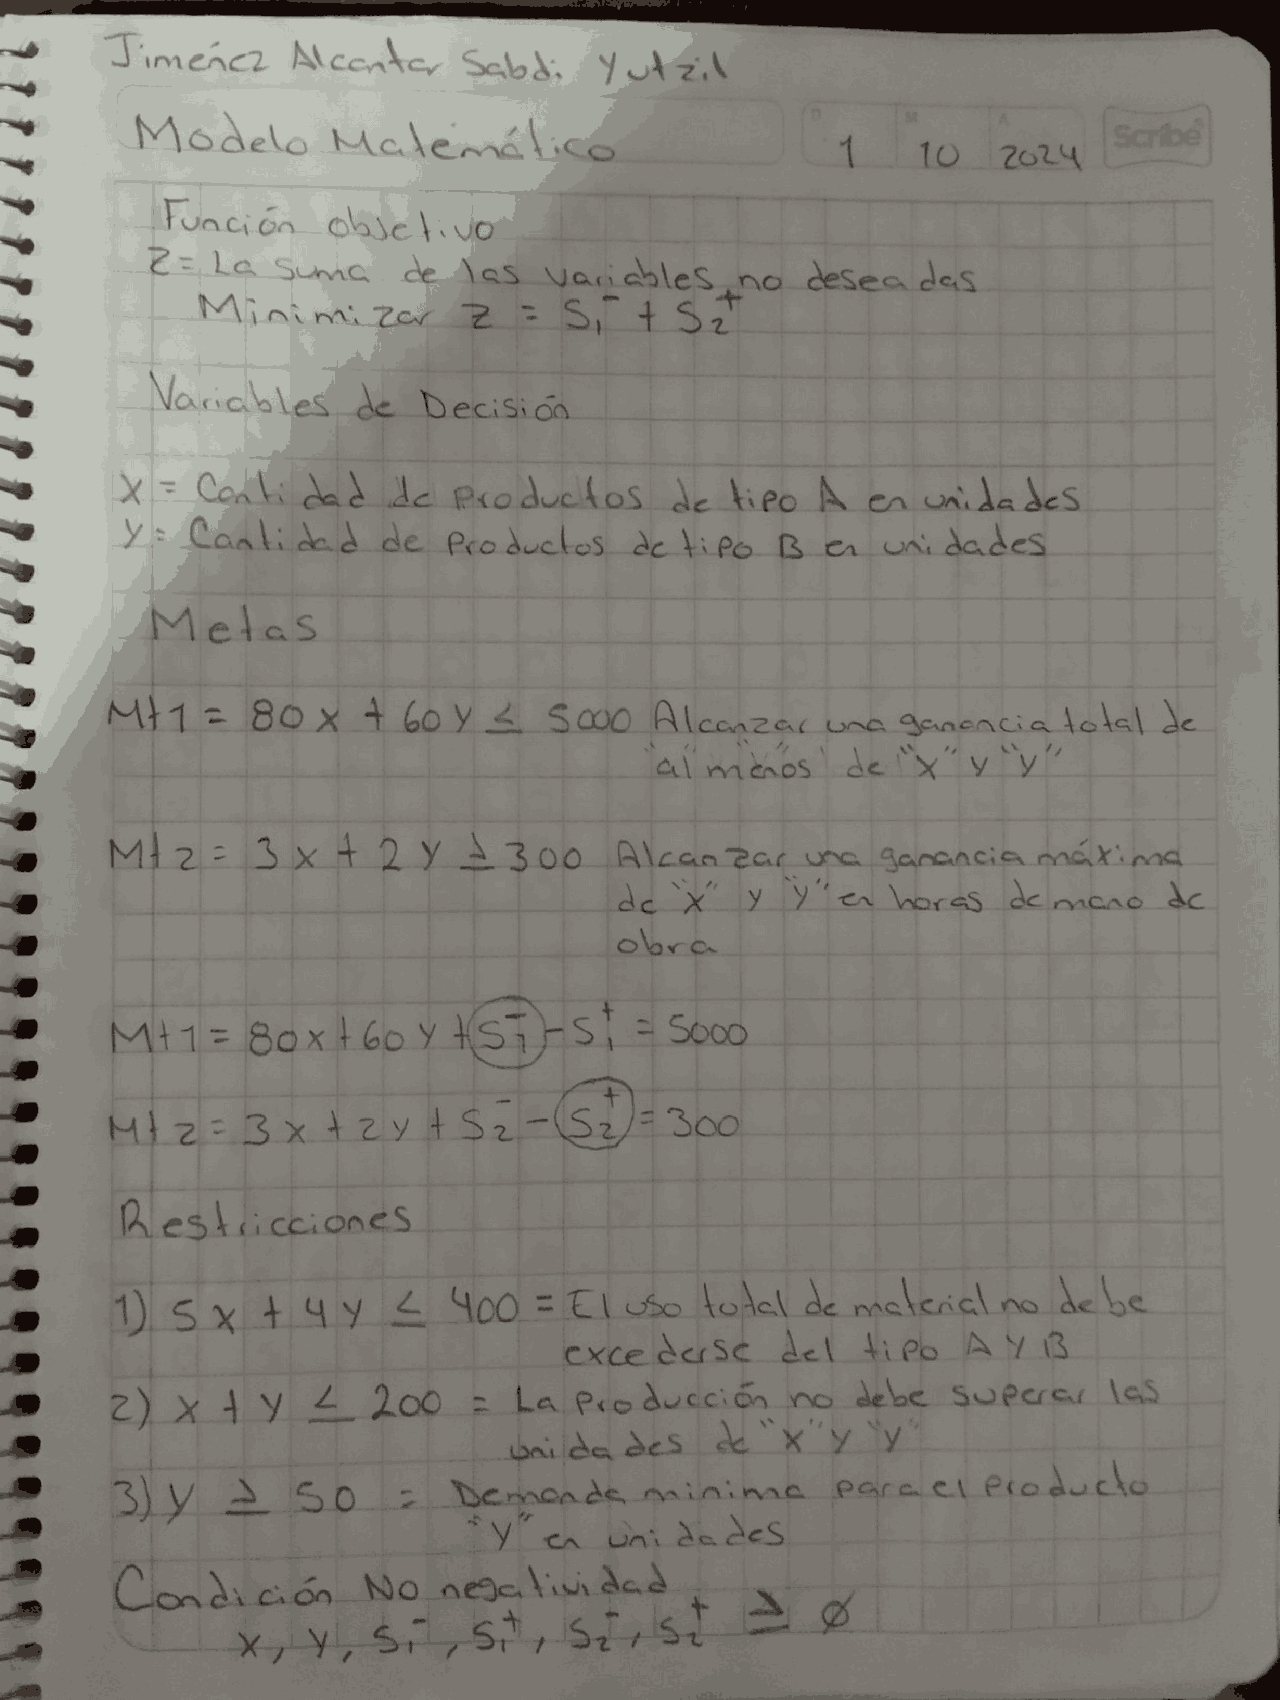 Jimenéz Alcantar Sabdi Yutzil
Modelo Matemático
D M A
1 10 2024
Scribe
Función objetivo
Z = La suma de las variables no deseadas
Minimizar Z = S₁⁻ + S₂⁺
Variables de Decisión
X = Cantidad de productos de tipo A en unidades
Y = Cantidad de productos de tipo B en unidades
Metas
Mt1 = 80x + 60y ≤ 5000 Alcanzar una ganancia total de
"al menos" de "x" y "y"
Mt2 = 3x + 2y ≥ 300 Alcanzar una ganancia máxima
de "x" y "y" en horas de mano de
obra
Mt1 = 80x + 60y + S₁⁻ - S₁⁺ = 5000
Mt2 = 3x + 2y + S₂⁻ - S₂⁺ = 300
Restricciones
1) 5x + 4y ≤ 400 = El uso total de material no debe
excederse del tipo A y B
2) x + y ≤ 200 = La producción no debe superar las
unidades de "x" y "y"
3) y ≥ 50 = Demanda minima para el producto
"y" en unidades
Condición No negatividad
x, y, S₁⁻, S₁⁺, S₂⁻, S₂⁺ ≥ ∅